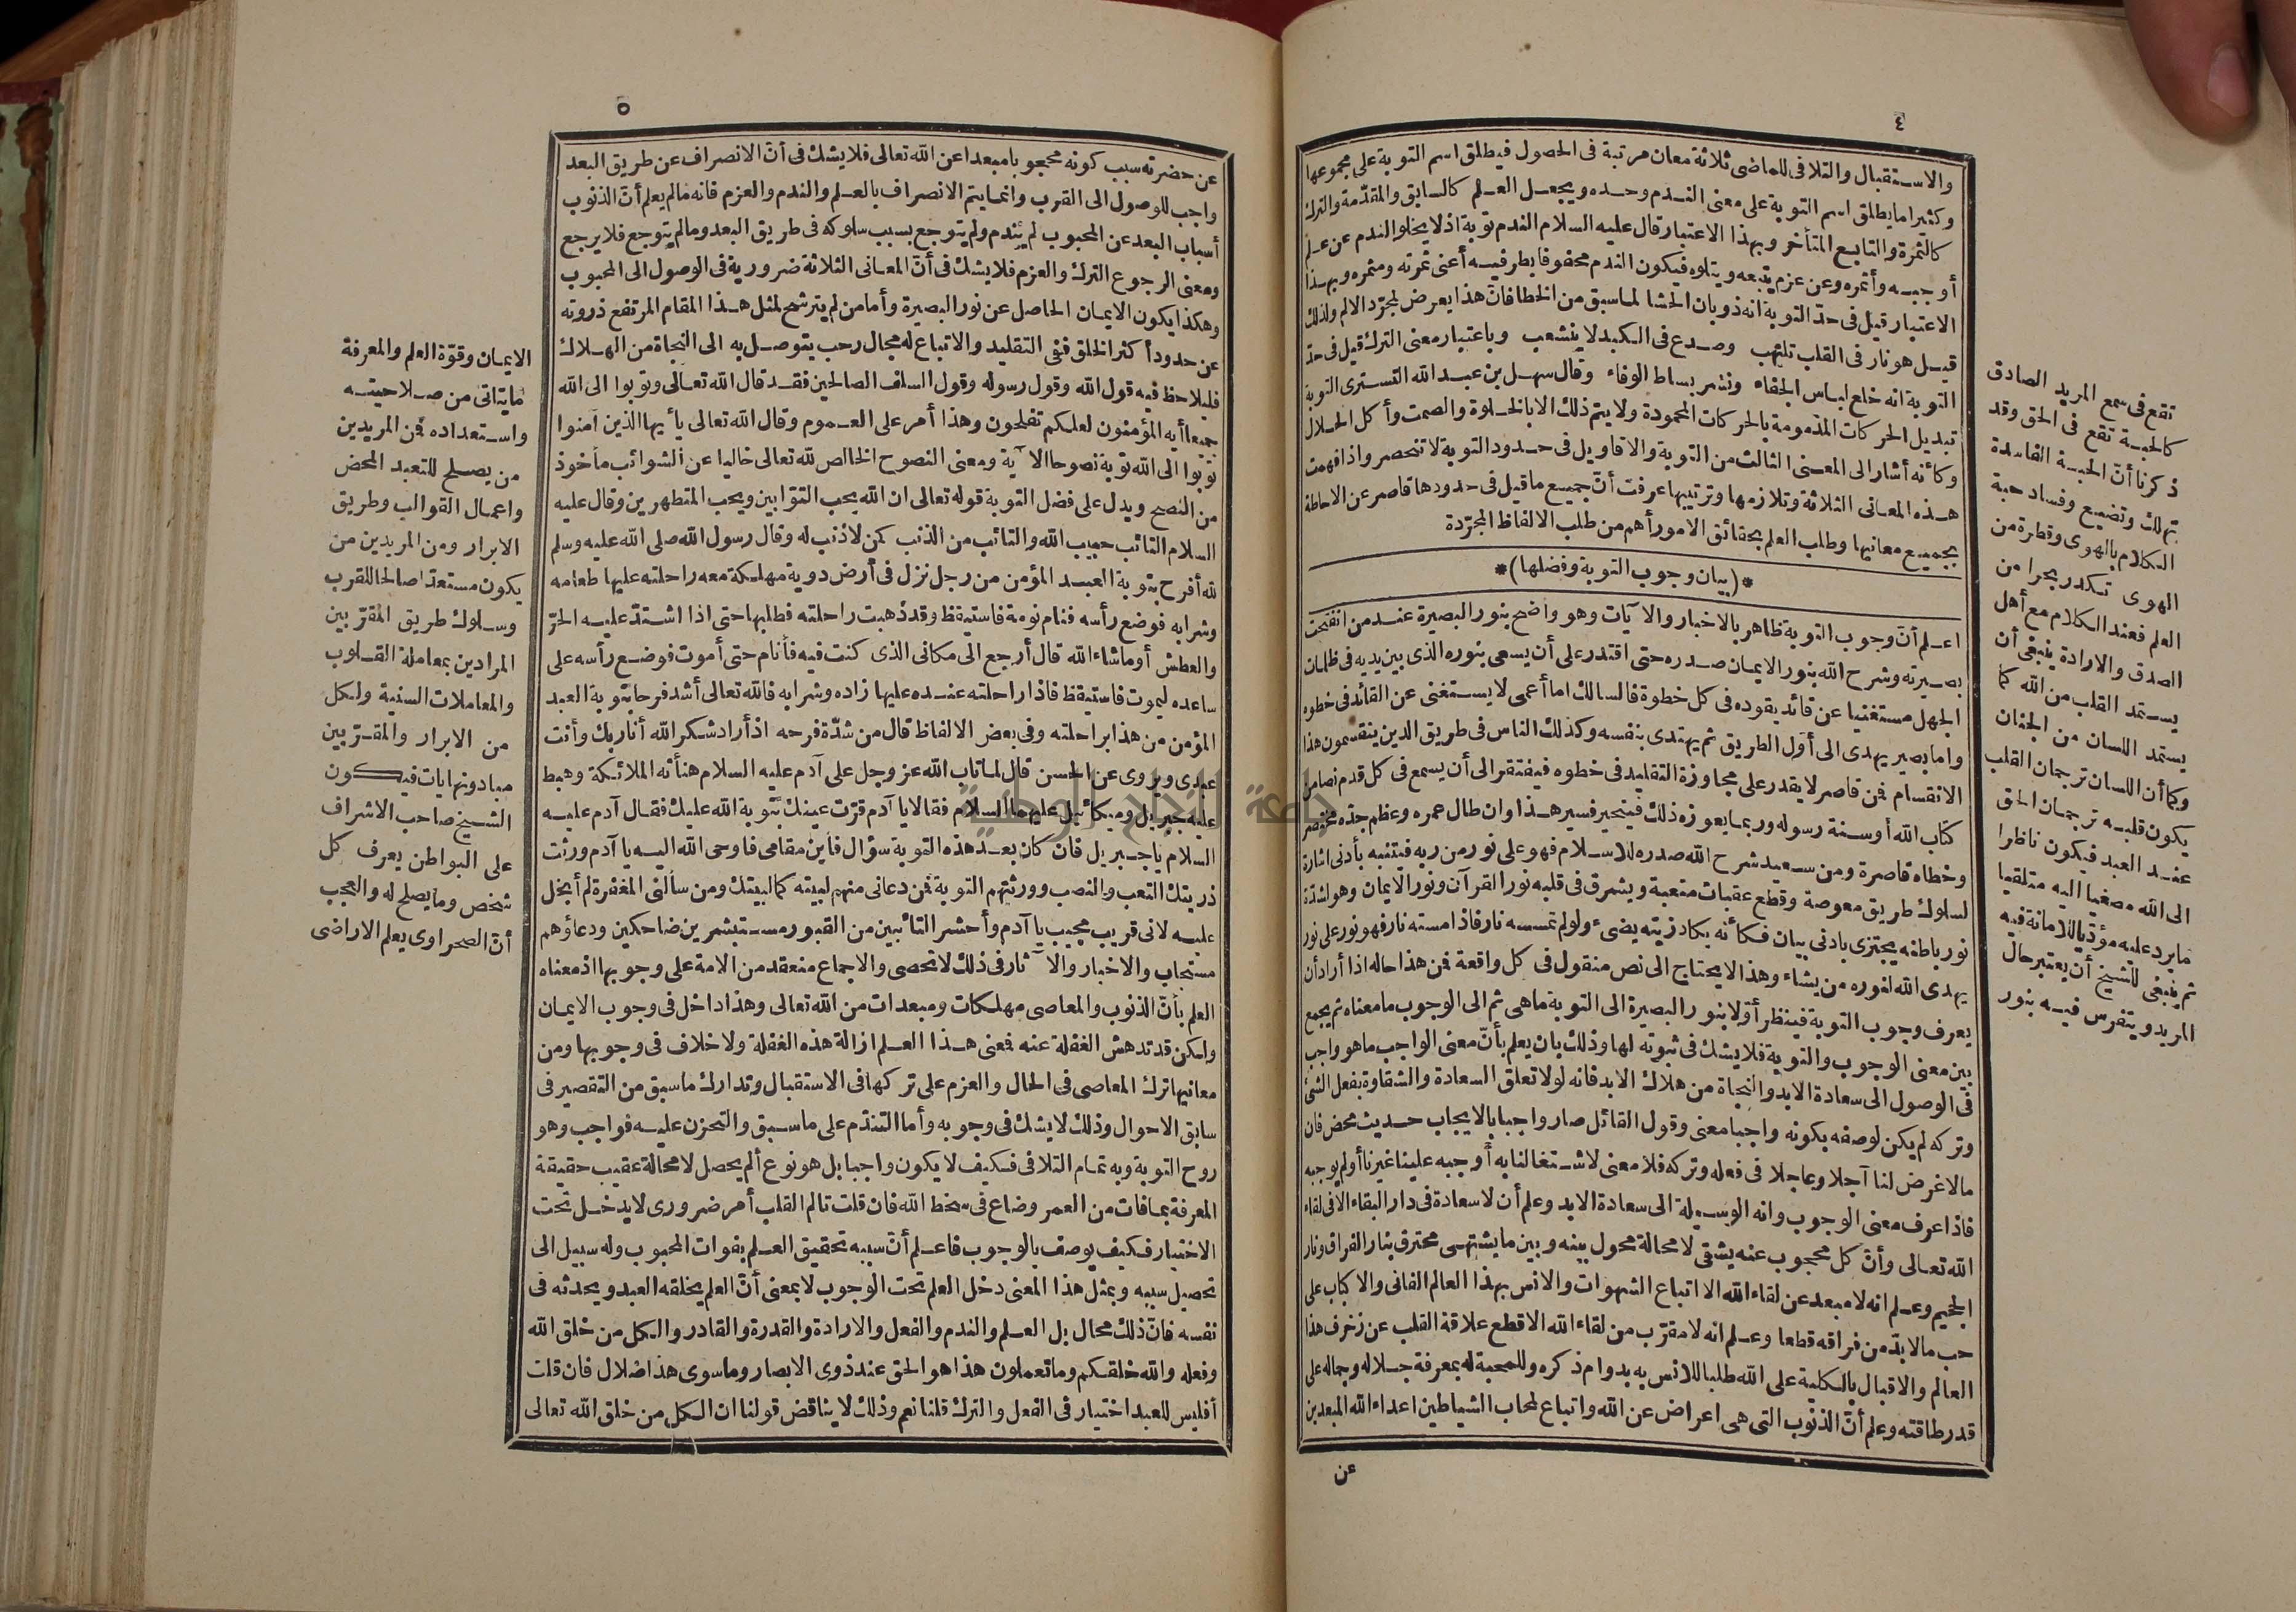 ٤
والاستقبال والتلافى للماضى ثلاثة معان مرتبة فى الحصول فيطلق اسم التوبة على مجموعها
وكثيرا ما يطلق اسم التوبة على معنى الندم وحده ويجعل العلم كالسابق والمقدّمة والترك
كالثمرة والتابع المتأخر وبهذا الاعتبار قال عليه السلام الندم توبة اذ لا يخلو الندم عن علم
أوجبه وأثمره وعن عزم يتبعه ويتلوه فيكون الندم محفوفا بطرفيه أعنى ثمرته ومثمره وبهذا
الاعتبار قيل فى حدّ التوبة انه ذوبان الحشا لما سبق من الخطا فانّ هذا يعرض لمجرّد الالم ولذلك
قيل هو نار فى القلب تلتهب وصدع فى الكبد لا ينشعب وباعتبار معنى الترك قيل فى حدّ
التوبة انه خلع لباس الجفاء ونشر بساط الوفاء وقال سهل بن عبد الله التسترى التوبة
تبديل الحركات المذمومة بالحركات المحمودة ولا يتم ذلك الا بالخلوة والصمت وأكل الحلال
وكأنه أشار الى المعنى الثالث من التوبة والاقاويل فى حدود التوبة لا تنحصر واذا فهمت
هذه المعانى الثلاثة وتلازمها وترتيبها عرفت أنّ جميع ما قيل فى حدودها قاصر عن الاحاطة
بجميع معانيها وطلب العلم بحقائق الامور أهم من طلب الالفاظ المجرّدة
*(بيان وجوب التوبة وفضلها)*
اعلم أنّ وجوب التوبة ظاهر بالاخبار والآيات وهو واضح بنور البصيرة عند من انفتحت
بصيرته وشرح الله بنور الايمان صدره حتى اقتدر على أن يسعى بنوره الذى بين يديه فى ظلمات
الجهل مستغنيا عن قائد يقوده فى كل خطوة فالسالك اما أعمى لا يستغنى عن القائد فى خطوه
واما بصير يهدى الى أوّل الطريق ثم يهتدى بنفسه وكذلك الناس فى طريق الدين ينقسمون هذا
الانقسام فمن قاصر لا يقدر على مجاوزة التقليد فى خطوه فيفتقر الى أن يسمع فى كل قدم نصا من
كتاب الله أو سنة رسوله وربما يعوزه ذلك فيتحير فسير هذا وان طال عمره وعظم جدّه مختصر
وخطاه قاصرة ومن سعيد شرح الله صدره للاسلام فهو على نور من ربه فيتنبه بأدنى اشارة
لسلوك طريق معوصة وقطع عقبات متعبة ويشرق فى قلبه نور القرآن ونور الايمان وهو لشدّة
نور باطنه يجتزى بادنى بيان فكأنه يكاد زيته يضىء ولو لم تمسسه نار فاذا مسته نار فهو نور على نور
يهدى الله لنوره من يشاء وهذا لا يحتاج الى نص منقول فى كل واقعة فمن هذا حاله اذا أراد أن
يعرف وجوب التوبة فينظر أوّلا بنور البصيرة الى التوبة ماهى ثم الى الوجوب ما معناه ثم يجمع
بين معنى الوجوب والتوبة فلا يشك فى ثبوته لها وذلك بان يعلم بأنّ معنى الواجب ما هو واجب
فى الوصول الى سعادة الابد والنجاة من هلاك الابد فانه لولا تعلق السعادة والشقاوة بفعل الشئ
وتركه لم يكن لوصفه بكونه واجبا معنى وقول القائل صار واجبا بالايجاب حديث محض فان
مالا غرض لنا آجلا وعاجلا فى فعله وتركه فلا معنى لاشتغالنا به أوجبه علينا غيرنا أو لم يوجبه
فاذا عرف معنى الوجوب وانه الوسيلة الى سعادة الابد وعلم أن لا سعادة فى دار البقاء الا فى لقاء
الله تعالى وأنّ كل محجوب عنه يشقى لا محالة محول بينه وبين ما يشتهى محترق بنار الفراق ونار
الجحيم وعلم انه لا مبعد عن لقاء الله الا اتباع الشهوات والانس بهذا العالم الفانى والاكباب على
حب مالا بدّ من فراقه قطعا وعلم انه لا مقرّب من لقاء الله الا قطع علاقة القلب عن زخرف هذا
العالم والاقبال بالكلية على الله طلبا للانس به بدوام ذكره وللمحبة له بمعرفة جلاله وجماله على
قدر طاقته وعلم أنّ الذنوب التى هى اعراض عن الله واتباع لمحاب الشياطين اعداء الله المبعدين
عن
تقع فى سمع المريد الصادق
كالحبة تقع فى الحق وقد
ذكرنا أنّ الحبة الفاسدة
تهلك وتضيع وفساد حبة
الكلام بالهوى وقطرة من
الهوى تكدر بحرا من
العلم فعند الكلام مع أهل
الصدق والارادة ينبغى أن
يستمد القلب من الله كما
يستمد اللسان من الجنان
وكما أن اللسان ترجمان القلب
يكون قلبه ترجمان الحق
عند العبد فيكون ناظرا
الى الله مصغيا اليه متلقيا
ما يرد عليه مؤدّيا للامانة فيه
ثم ينبغى للشيخ أن يعتبر حال
المريد ويتفرس فيه بنور
٥
عن حضرته سبب كونه محجوبا مبعدا عن الله تعالى فلا يشك فى أنّ الانصراف عن طريق البعد
واجب للوصول الى القرب وانما يتم الانصراف بالعلم والندم والعزم فانه مالم يعلم أنّ الذنوب
أسباب البعد عن المحبوب لم يندم ولم يتوجع بسبب سلوكه فى طريق البعد ومالم يتوجع فلا يرجع
ومعنى الرجوع الترك والعزم فلا يشك فى أنّ المعانى الثلاثة ضرورية فى الوصول الى المحبوب
وهكذا يكون الايمان الحاصل عن نور البصيرة وأما من لم يترشح لمثل هذا المقام المرتفع ذروته
عن حدود أكثر الخلق ففى التقليد والاتباع له مجال رحب يتوصل به الى النجاة من الهلاك
فليلاحظ فيه قول الله وقول رسوله وقول السلف الصالحين فقد قال الله تعالى وتوبوا الى الله
جميعا أيه المؤمنون لعلكم تفلحون وهذا أمر على العموم وقال الله تعالى يا أيها الذين آمنوا
توبوا الى الله توبة نصوحا الآية ومعنى النصوح الخالص لله تعالى خاليا عن الشوائب مأخوذ
من النصح ويدل على فضل التوبة قوله تعالى ان الله يحب التوّابين ويحب المتطهرين وقال عليه
السلام التائب حبيب الله والتائب من الذنب كمن لا ذنب له وقال رسول الله صلى الله عليه وسلم
لله أفرح بتوبة العبد المؤمن من رجل نزل فى أرض دوية مهلكة معه راحلته عليها طعامه
وشرابه فوضع رأسه فنام نومة فاستيقظ وقد ذهبت راحلته فطلبها حتى اذا اشتدّ عليه الحرّ
والعطش أو ما شاء الله قال أرجع الى مكانى الذى كنت فيه فأنام حتى أموت فوضع رأسه على
ساعده ليموت فاستيقظ فاذا راحلته عنده عليها زاده وشرابه فالله تعالى أشد فرحا بتوبة العبد
المؤمن من هذا براحلته وفى بعض الالفاظ قال من شدّة فرحه اذ أراد شكر الله أنا ربك وأنت
عبدى ويروى عن الحسن قال لما تاب الله عز وجل على آدم عليه السلام هنأته الملائكة وهبط
عليه جبريل وميكائيل عليهما السلام فقالا يا آدم قرّت عينك بتوبة الله عليك فقال آدم عليه
السلام يا جبريل فان كان بعد هذه التوبة سؤال فأين مقامى فاوحى الله اليه يا آدم ورثت
ذريتك التعب والنصب وورثتهم التوبة فمن دعانى منهم لبيته كما لبيتك ومن سألنى المغفرة لم أبخل
عليه لانى قريب مجيب يا آدم وأحشر التائبين من القبور مستبشرين ضاحكين ودعاؤهم
مستجاب والاخبار والآثار فى ذلك لا تحصى والاجماع منعقد من الامة على وجوبها اذ معناه
العلم بأنّ الذنوب والمعاصى مهلكات ومبعدات من الله تعالى وهذا داخل فى وجوب الايمان
ولكن قد تدهش الغفلة عنه فمعنى هذا العلم ازالة هذه الغفلة ولا خلاف فى وجوبها ومن
معانيها ترك المعاصى فى الحال والعزم على تركها فى الاستقبال وتدارك ما سبق من التقصير فى
سابق الاحوال وذلك لا يشك فى وجوبه وأما التندّم على ما سبق والتحزن عليه فواجب وهو
روح التوبة وبه تمام التلافى فكيف لا يكون واجبا بل هو نوع ألم يحصل لا محالة عقيب حقيقة
المعرفة بمافات من العمر وضاع فى سخط الله فان قلت تالم القلب أمر ضرورى لا يدخل تحت
الاختيار فكيف يوصف بالوجوب فاعلم أنّ سببه تحقيق العلم بفوات المحبوب وله سبيل الى
تحصيل سببه وبمثل هذا المعنى دخل العلم تحت الوجوب لا بمعنى أنّ العلم يخلقه العبد ويحدثه فى
نفسه فانّ ذلك محال بل العلم والندم والفعل والارادة والقدرة والقادر والكل من خلق الله
وفعله والله خلقكم وما تعملون هذا هو الحق عند ذوى الابصار وما سوى هذا ضلال فان قلت
أفليس للعبد اختيار فى الفعل والترك قلنا نعم وذلك لا يناقض قولنا ان الكل من خلق الله تعالى
الايمان وقوّة العلم والمعرفة
ما يتاتى من صلاحيته
واستعداده فمن المريدين
من يصلح للتعبد المحض
واعمال القوالب وطريق
الابرار ومن المريدين من
يكون مستعدّا صالحا للقرب
وسلوك طريق المقرّبين
المرادين بمعاملة القلوب
والمعاملات السنية ولكل
من الابرار والمقرّبين
مباد ونهايات فيكون
الشيخ صاحب الاشراف
على البواطن يعرف كل
شخص وما يصلح له والعجب
أنّ الصحراوى يعلم الاراضى
جامعة النجاح الوطنية